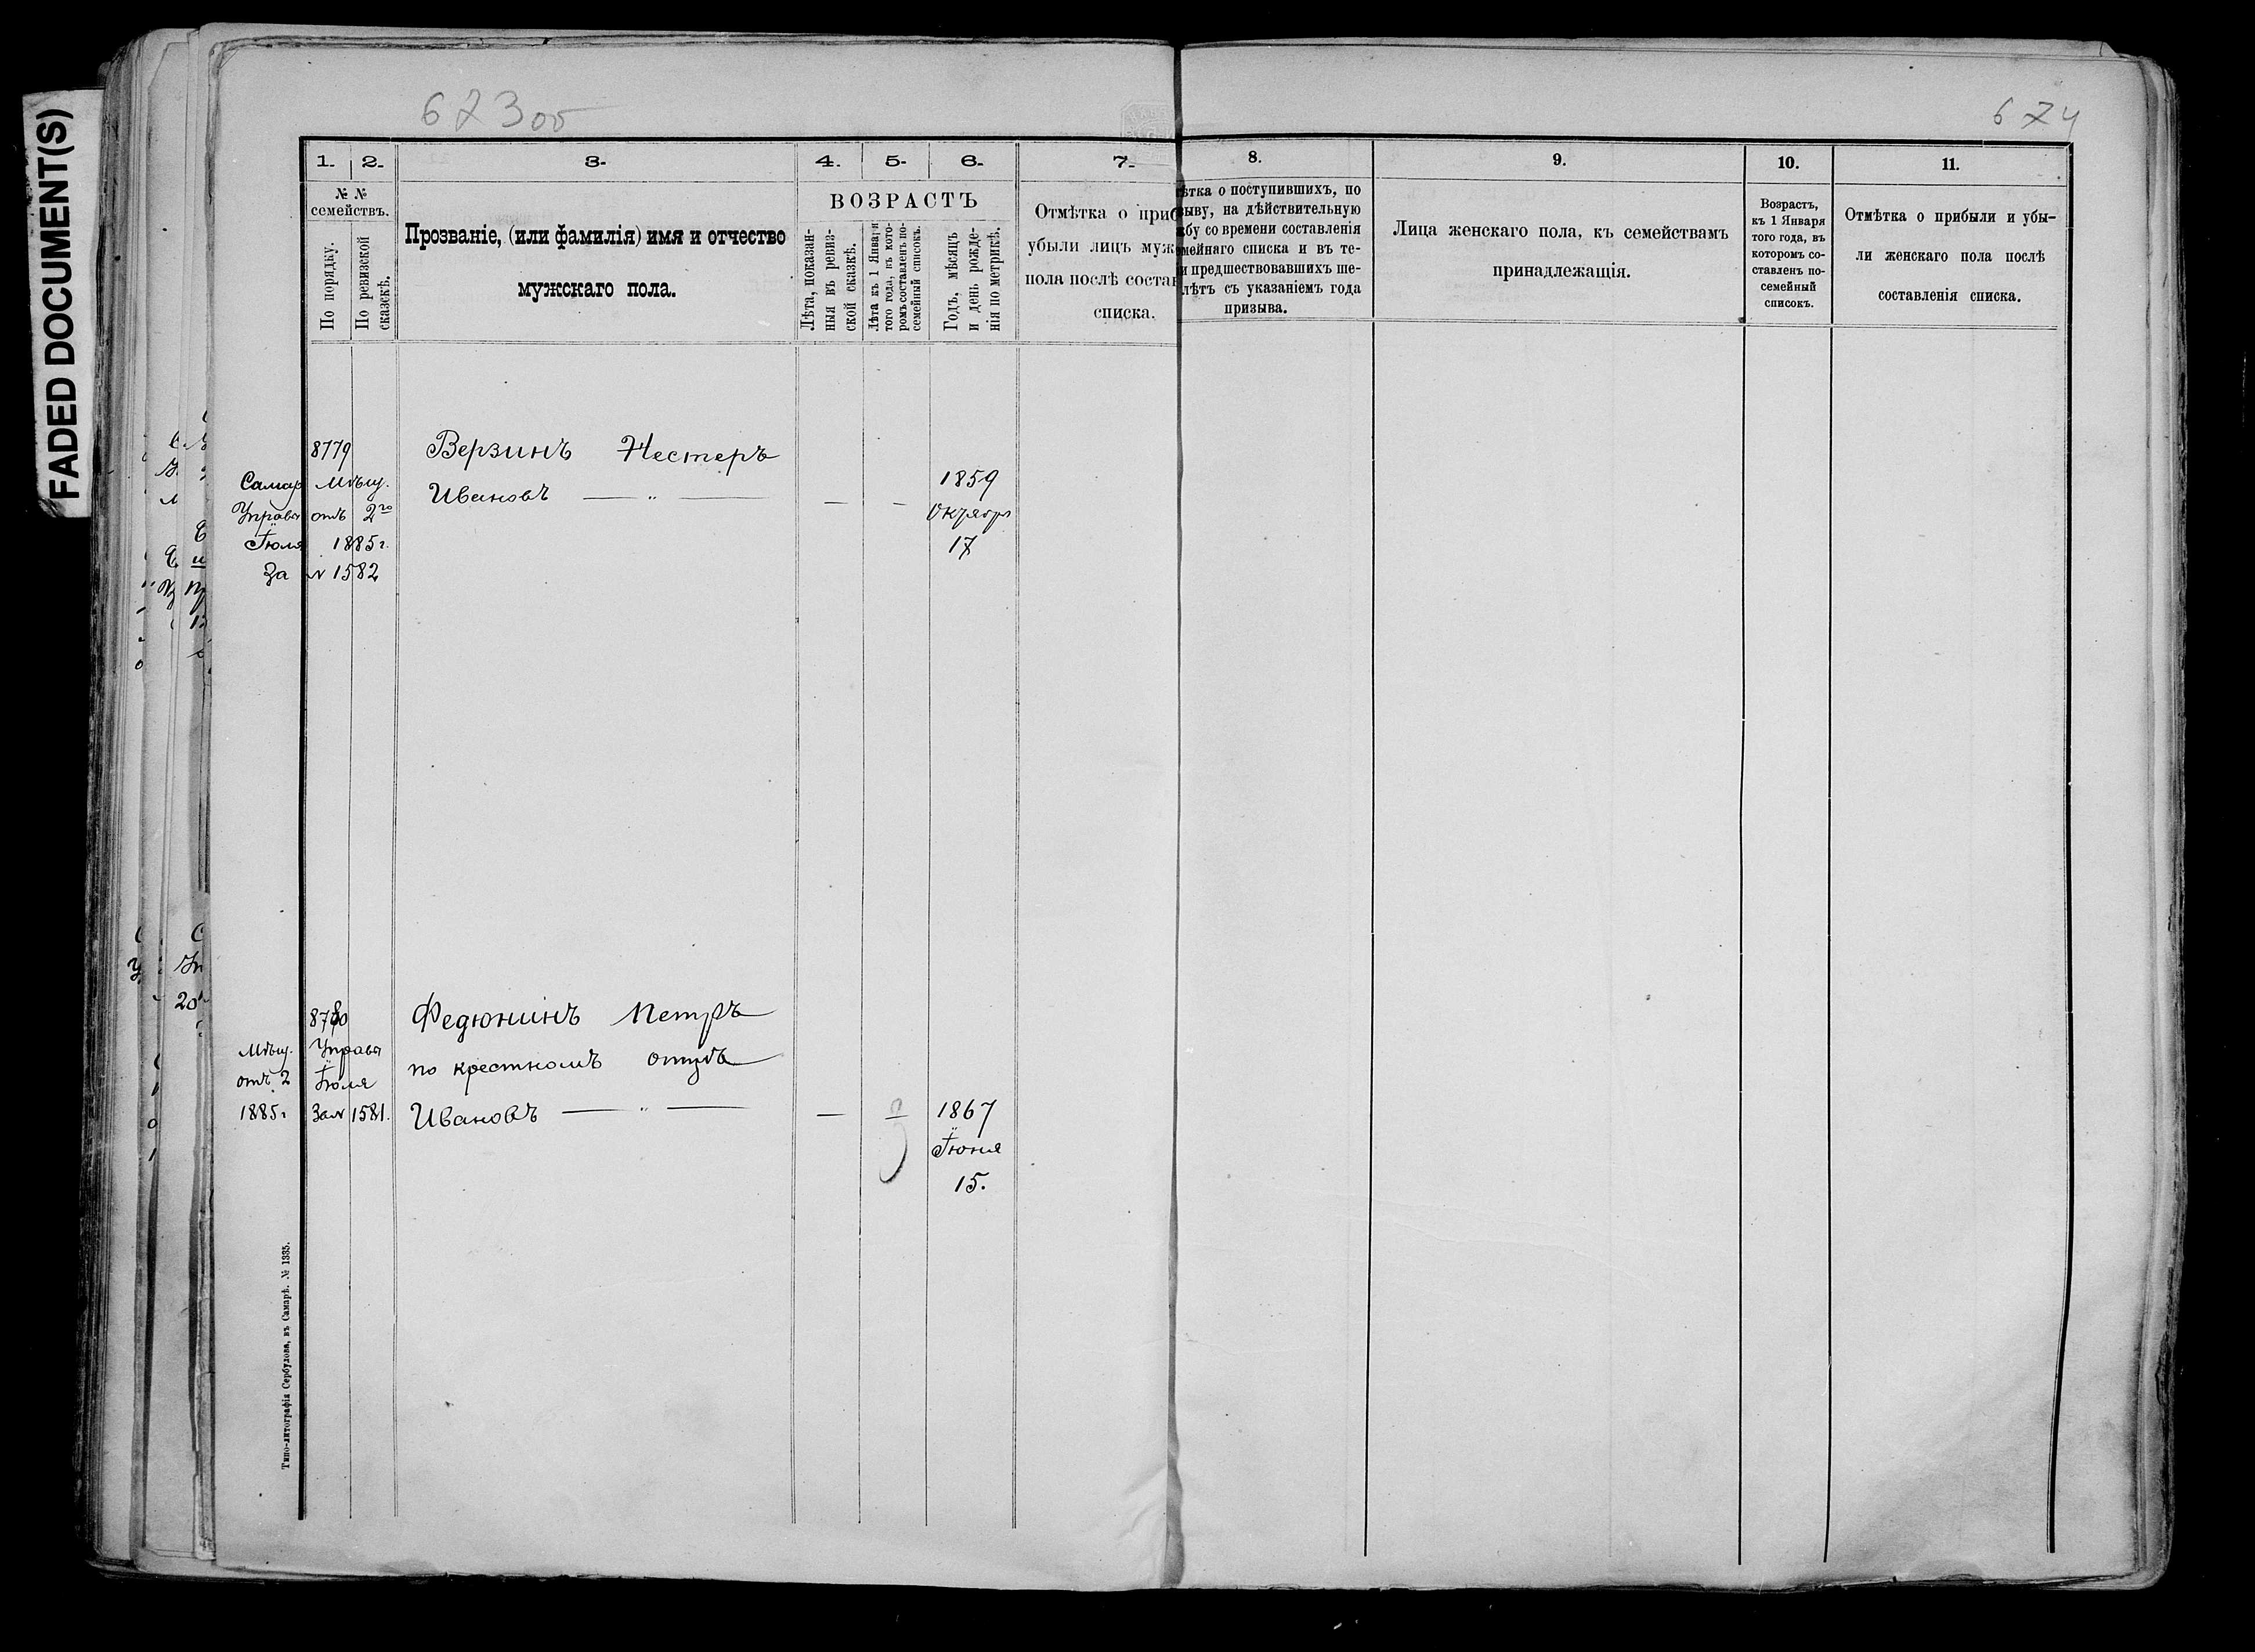 FADED DOCUMENT(S)
673об
674
1. 2. 3. 4. 5. 6. 7.
№ №
семействъ.
По порядку.
По ревизской
сказкѣ.
Прозваніе, (или фамилія) имя и отчество
мужскаго пола.
ВОЗРАСТЪ
Лѣта, показан-
ныя въ ревиз-
ской сказкѣ.
Лѣта къ 1 Января
того года, въ кото-
ромъ составленъ по-
семейный списокъ.
Годъ, мѣсяцъ
и день рожде-
нія по метрикѣ.
Отмѣтка о приб
убыли лицъ муж
пола послѣ состав
списка.
8. 9. 10. 11.
ѣтка о поступившихъ, по
зыву, на дѣйствительную
жбу со времени составленія
емейнаго списка и въ те-
и предшествовавшихъ ше-
лѣтъ съ указаніемъ года
призыва.
Лица женскаго пола, къ семействамъ
принадлежащія.
Возрастъ,
къ 1 Января
того года, въ
которомъ со-
ставленъ по-
семейный
списокъ.
Отмѣтка о прибыли и убы-
ли женскаго пола послѣ
составленія списка.
8779
Самар Мѣщ.
Управы отъ 2го
Іюля 1885 г.
За № 1582
Верзинъ Нестеръ
Ивановъ — „ —
— —
1859
Октября
17
8780
Мѣщ. Управы
отъ 2 Іюля
1885 г За № 1581.
Федюнинъ Петръ
по крестномъ отцѣ
Ивановъ — „ —
— —
1867
Іюня
15.
Типо-литографія Сербулова, въ Самарѣ. № 1335.